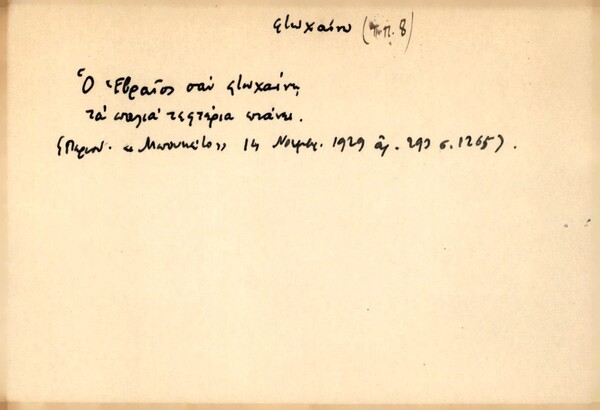 φτωχαίνω (π.π. 8)
Ὁ Ἑβραῖος σαν φτωχαίνη
τα παλιά τεφτέρια πιάνει.
(Περιοδ. «Μπουκέτο» 14 Νοεμβρ. 1929 ἀρ. 293 σ. 1265).